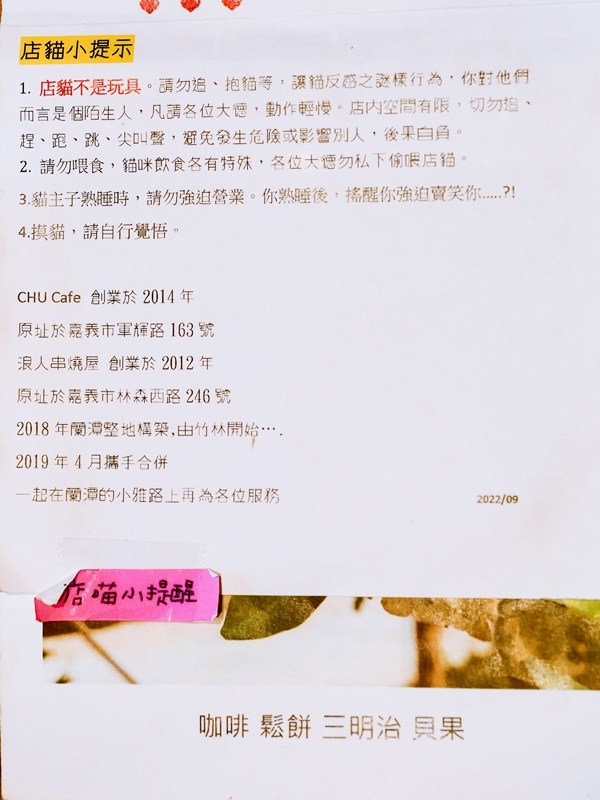 店貓小提示
1. 店貓不是玩具。請勿追、抱貓等，讓貓反感之謎樣行為，你對他們
而言是個陌生人，凡請各位大德，動作輕慢。店內空間有限，切勿追、
趕、跑、跳、尖叫聲，避免發生危險或影響別人，後果自負。
2. 請勿喂食，貓咪飲食各有特殊，各位大德勿私下偷喂店貓。
3.貓主子熟睡時，請勿強迫營業。你熟睡後，搖醒你強迫賣笑你.....?!
4.摸貓，請自行覺悟。
CHU Cafe 創業於 2014 年
原址於嘉義市軍輝路 163 號
浪人串燒屋 創業於 2012 年
原址於嘉義市林森西路 246 號
2018 年蘭潭整地構築,由竹林開始⋯.
2019 年 4 月攜手合併
一起在蘭潭的小雅路上再為各位服務
2022/09
店喵小提醒
咖啡 鬆餅 三明治 貝果